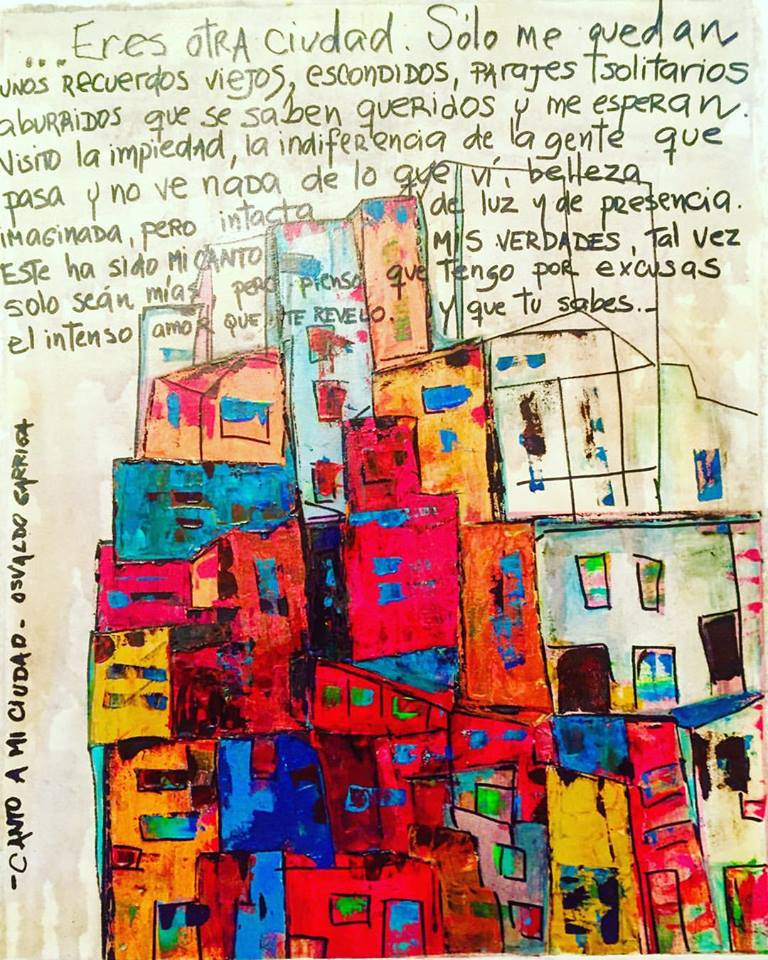 ...Eres OTRA ciudad. Sólo me quedan
UNOS RECUERDOS viejos, escondidos, PARAJES solitarios
aburridos que se saben queridos y me esperan.
Visito la impiedad, la indiferencia de la gente que
pasa y no ve nada de lo que ví, belleza
imaginada, pero intacta de luz y de presencia.
Este ha sido Mi CANTO MIS VERDADES, Tal Vez
solo seán mías, pero pienso que Tengo por excusas
el intenso amor QUE TE REVELO. y que tu sabes..
-CANTO A MI CIUDAD- OSVALDO GARRIGA